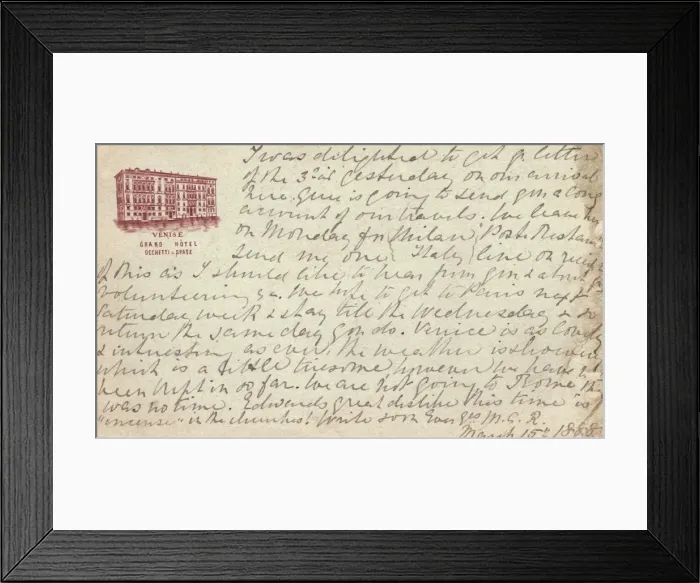 VENISE
GRAND HÔTEL
I was delighted to get yr letter
of the 3rd yesterday on our arrival
here. is going to send you a long
account of our travels. We leave
on Monday for Milan Poste Restante
send me one Italy line on
of this as I should like to hear from you & about
volunteering &c. We hope to get to Paris next
Saturday week & stay till the Wednesday & so
return the same day you do. Venice is as lovely
& interesting as ever, the weather is showery
which is a little tiresome however we have not
been kept in so far. We are not going to Rome
was no time. Edwards great dislike this time is
"incense" in the churches! Write soon Ever yrs M.G.R.
March 15th